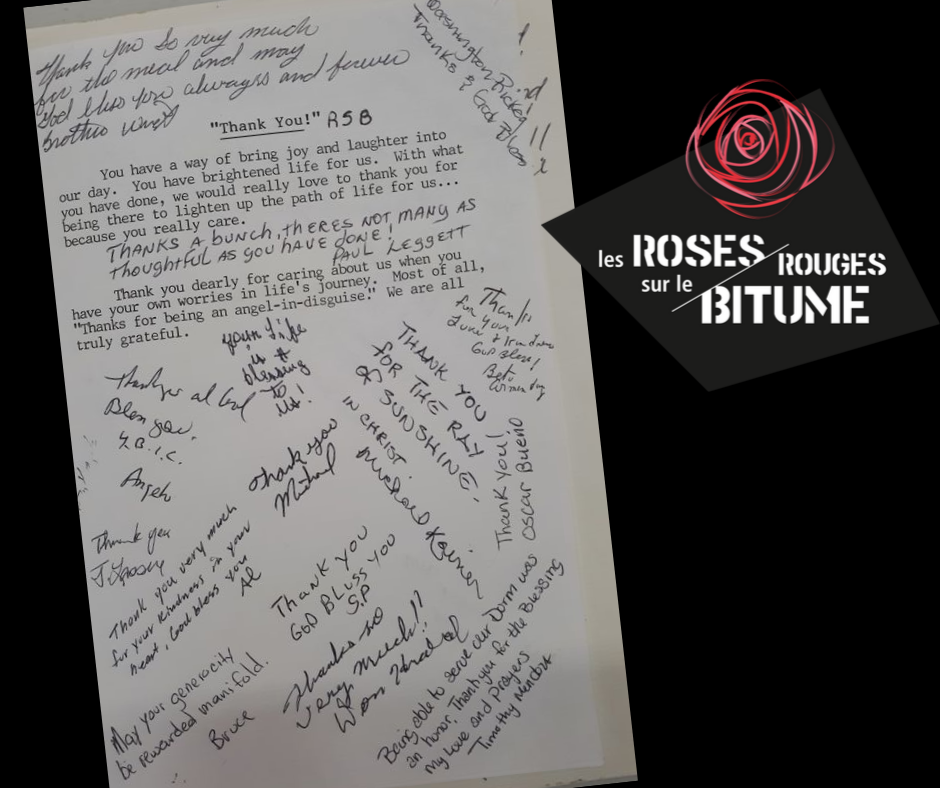 Thank you so very much
for the meal and may
God bless you always and forever
brother
Washington Rickey
Thanks & God Bless
"Thank You!" RSB
You have a way of bring joy and laughter into
our day. You have brightened life for us. With what
you have done, we would really love to thank you for
being there to lighten up the path of life for us...
because you really care.
THANKS A BUNCH, THERES NOT MANY AS
THOUGHTFUL AS YOU HAVE DONE!
PAUL LEGGETT
Thank you dearly for caring about us when you
have your own worries in life's journey. Most of all,
"Thanks for being an angel-in-disguise." We are all
truly grateful.
your life
is a
blessing
to
us!
Thanks
for your
Love &
God Bless!
THANK YOU
FOR THE RAY
OF SUNSHINE.
IN CHRIST.
Michael
Thank You!
Oscar Bueno
Bless you.
Angel
thank you
Michael
Thank you
Thank you very much
for your kindness in your
heart, God bless you
Al
THANK YOU
GOD BLUSS YOU
S.P
thanks so
very much!!
May your generocity
be rewarded manifold.
Bruce
Being able to serve our Dorm was
an honor. Thank you for the Blessing
My Love and prayers
Timothy
les ROSES
ROUGES
sur le
BITUME